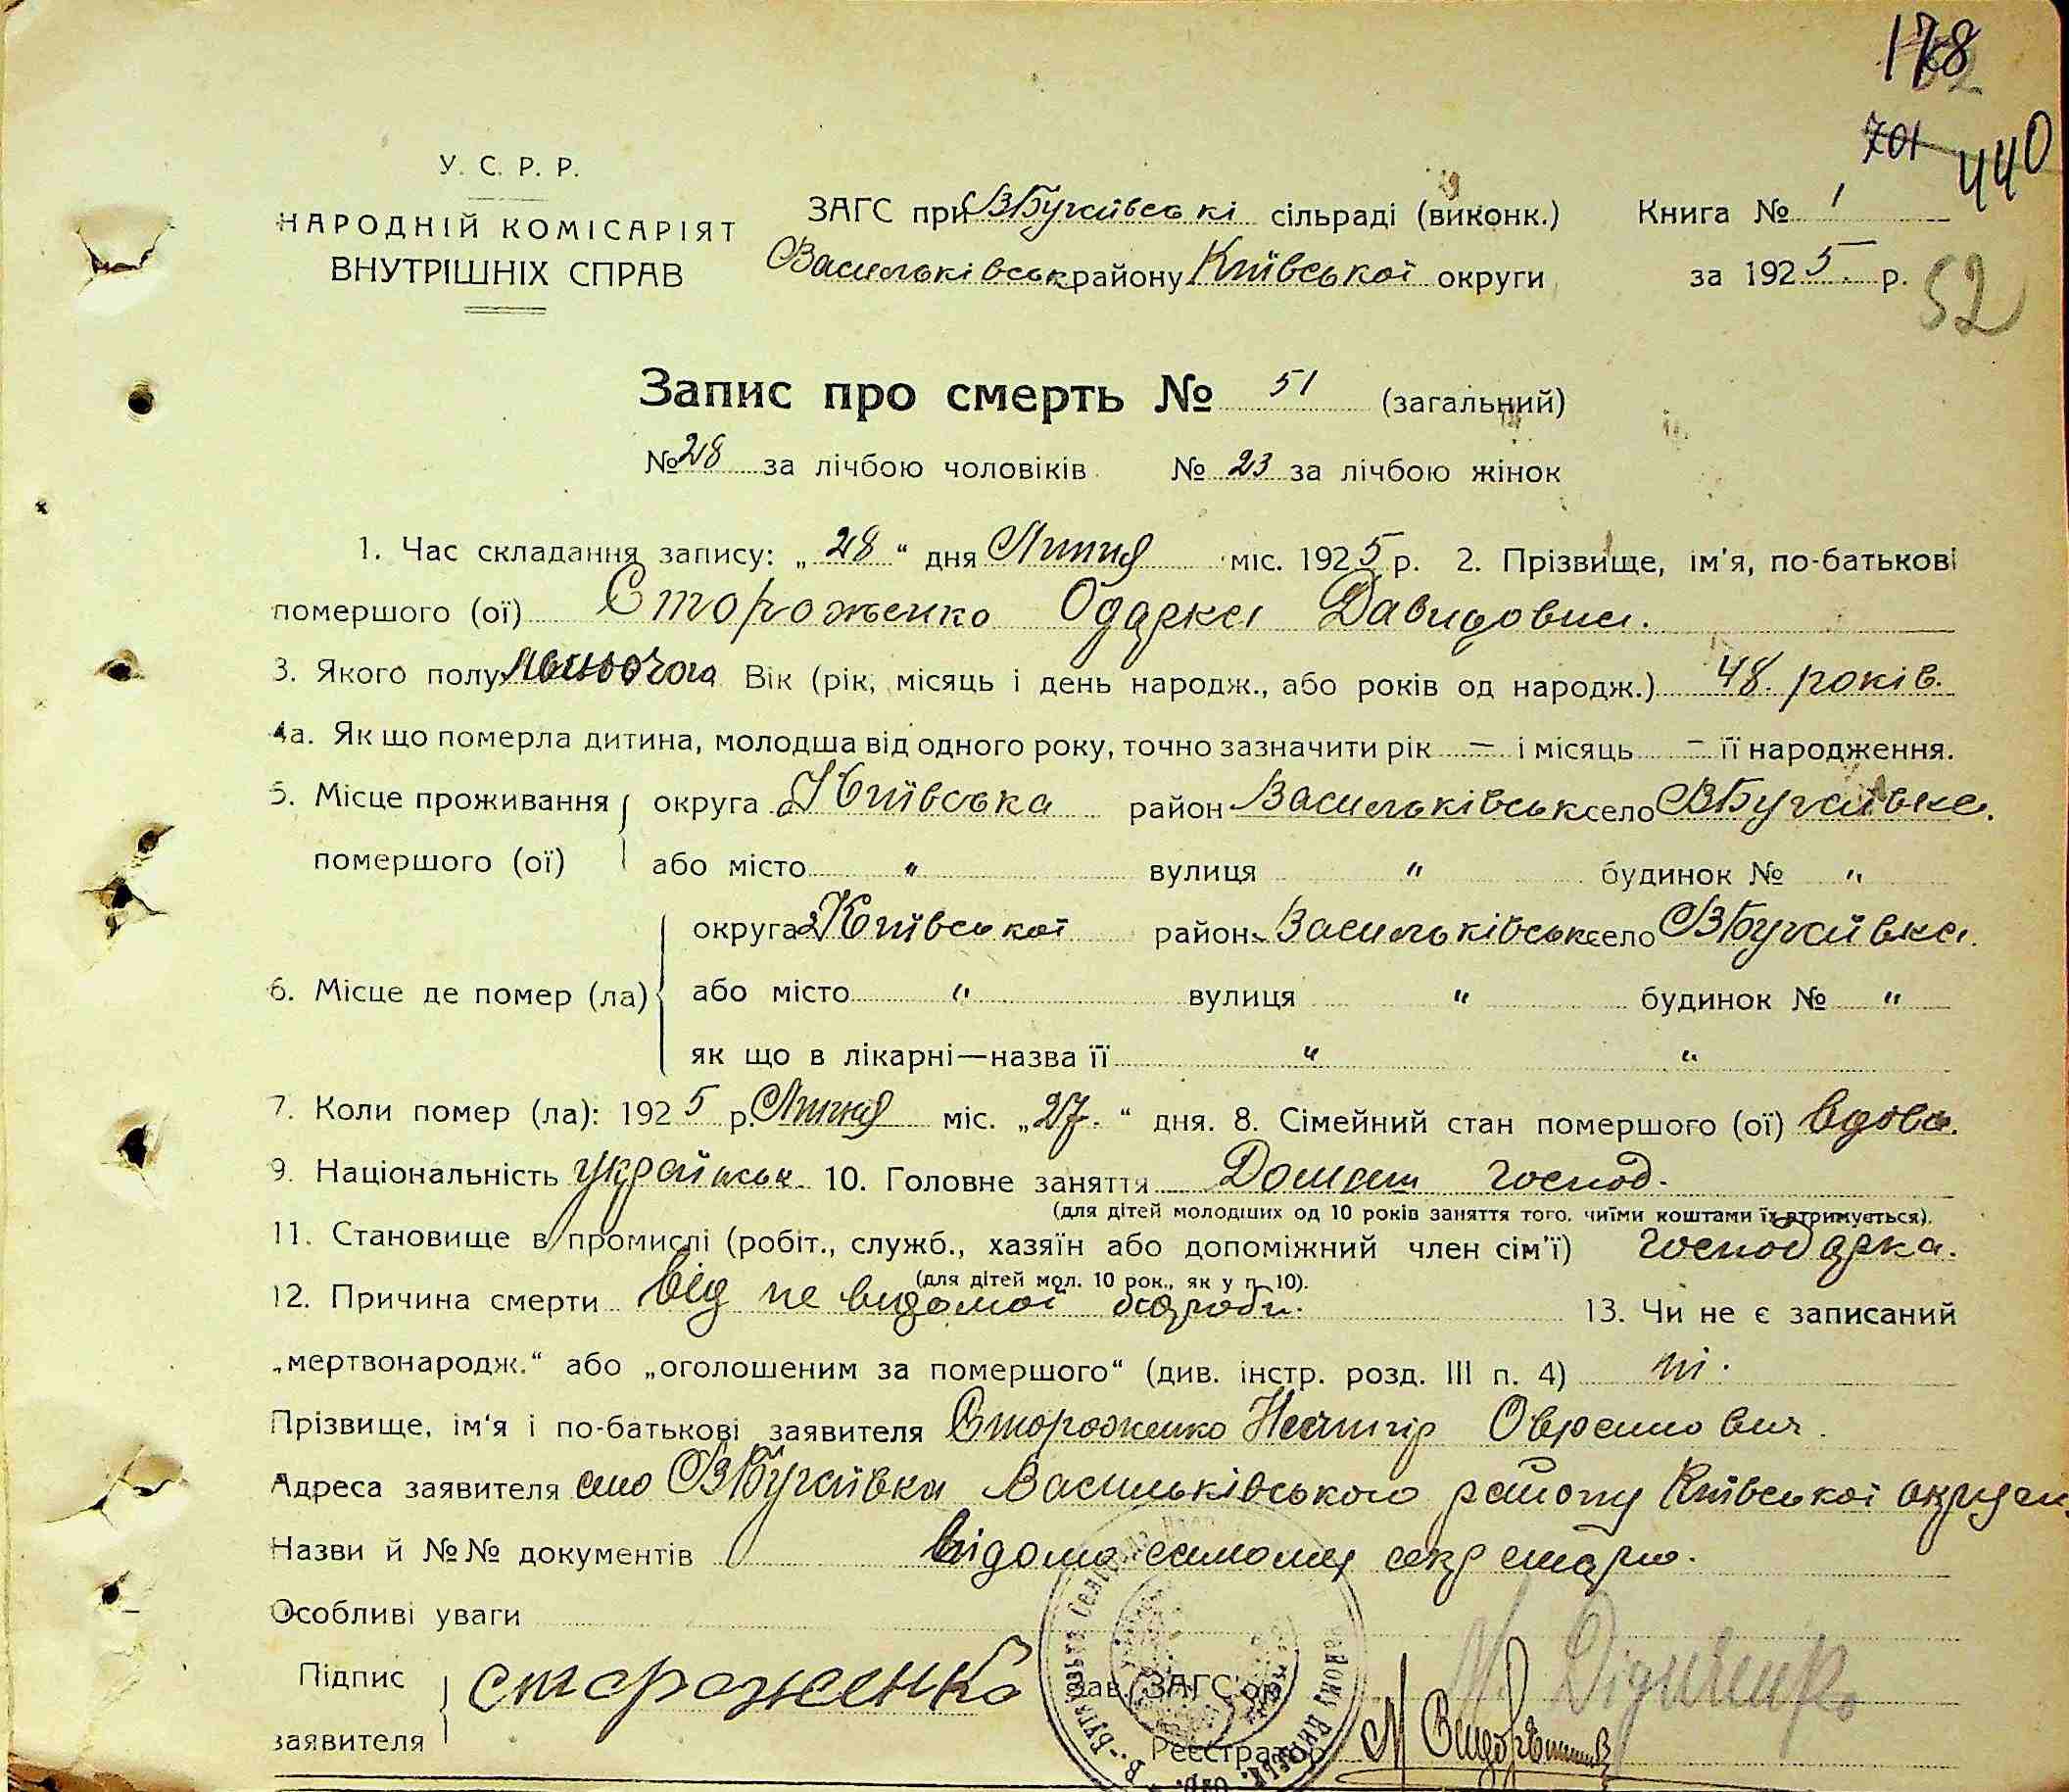 178
701 440
У. С. Р. Р.
НАРОДНІЙ КОМІСАРІЯТ
ВНУТРІШНІХ СПРАВ
ЗАГС при В Бугаївські сільраді (виконк.) Книга № 1
Васильківськ району Київської округи за 1925 р.
52
Запис про смерть № 51 (загальний)
№ 28 за лічбою чоловіків № 23 за лічбою жінок
1. Час складання запису: „28“ дня Липня міс. 1925 р. 2. Прізвище, ім'я, по-батькові
помершого (ої) Стороженко Одарка Давидовна.
3. Якого полу жіночого Вік (рік, місяць і день народж., або років од народж.) 48. років.
4а. Як що померла дитина, молодша від одного року, точно зазначити рік — і місяць — її народження.
5. Місце проживання помершого (ої) округа Київська район Васильківськ село В Бугаївка.
або місто " вулиця " будинок № "
6. Місце де помер (ла) округа Київської район Васильківськ село В Бугаївка.
або місто " вулиця " будинок № "
як що в лікарні—назва її " "
7. Коли помер (ла): 1925 р. Липня міс. „27.“ дня. 8. Сімейний стан помершого (ої) вдова.
9. Національність українськ. 10. Головне заняття Домаш господ.
(для дітей молодших од 10 років заняття того, чиїми коштами їх втримується).
11. Становище в промислі (робіт., служб., хазяїн або допоміжний член сім'ї) господарка.
(для дітей мол. 10 рок., як у п. 10).
12. Причина смерти від не видомої хороби. 13. Чи не є записаний
„мертвонародж.“ або „оголошеним за помершого“ (див. інстр. розд. III п. 4) ні.
Прізвище, ім'я і по-батькові заявителя Стороженко Нечипір Овремович.
Адреса заявителя село В Бугаївка Васильківського району Київської округи
Назви й №№ документів відомо самому секретарю.
Особливі уваги
Підпис заявителя стороженко
зав. ЗАГС'ом
Реєстратор